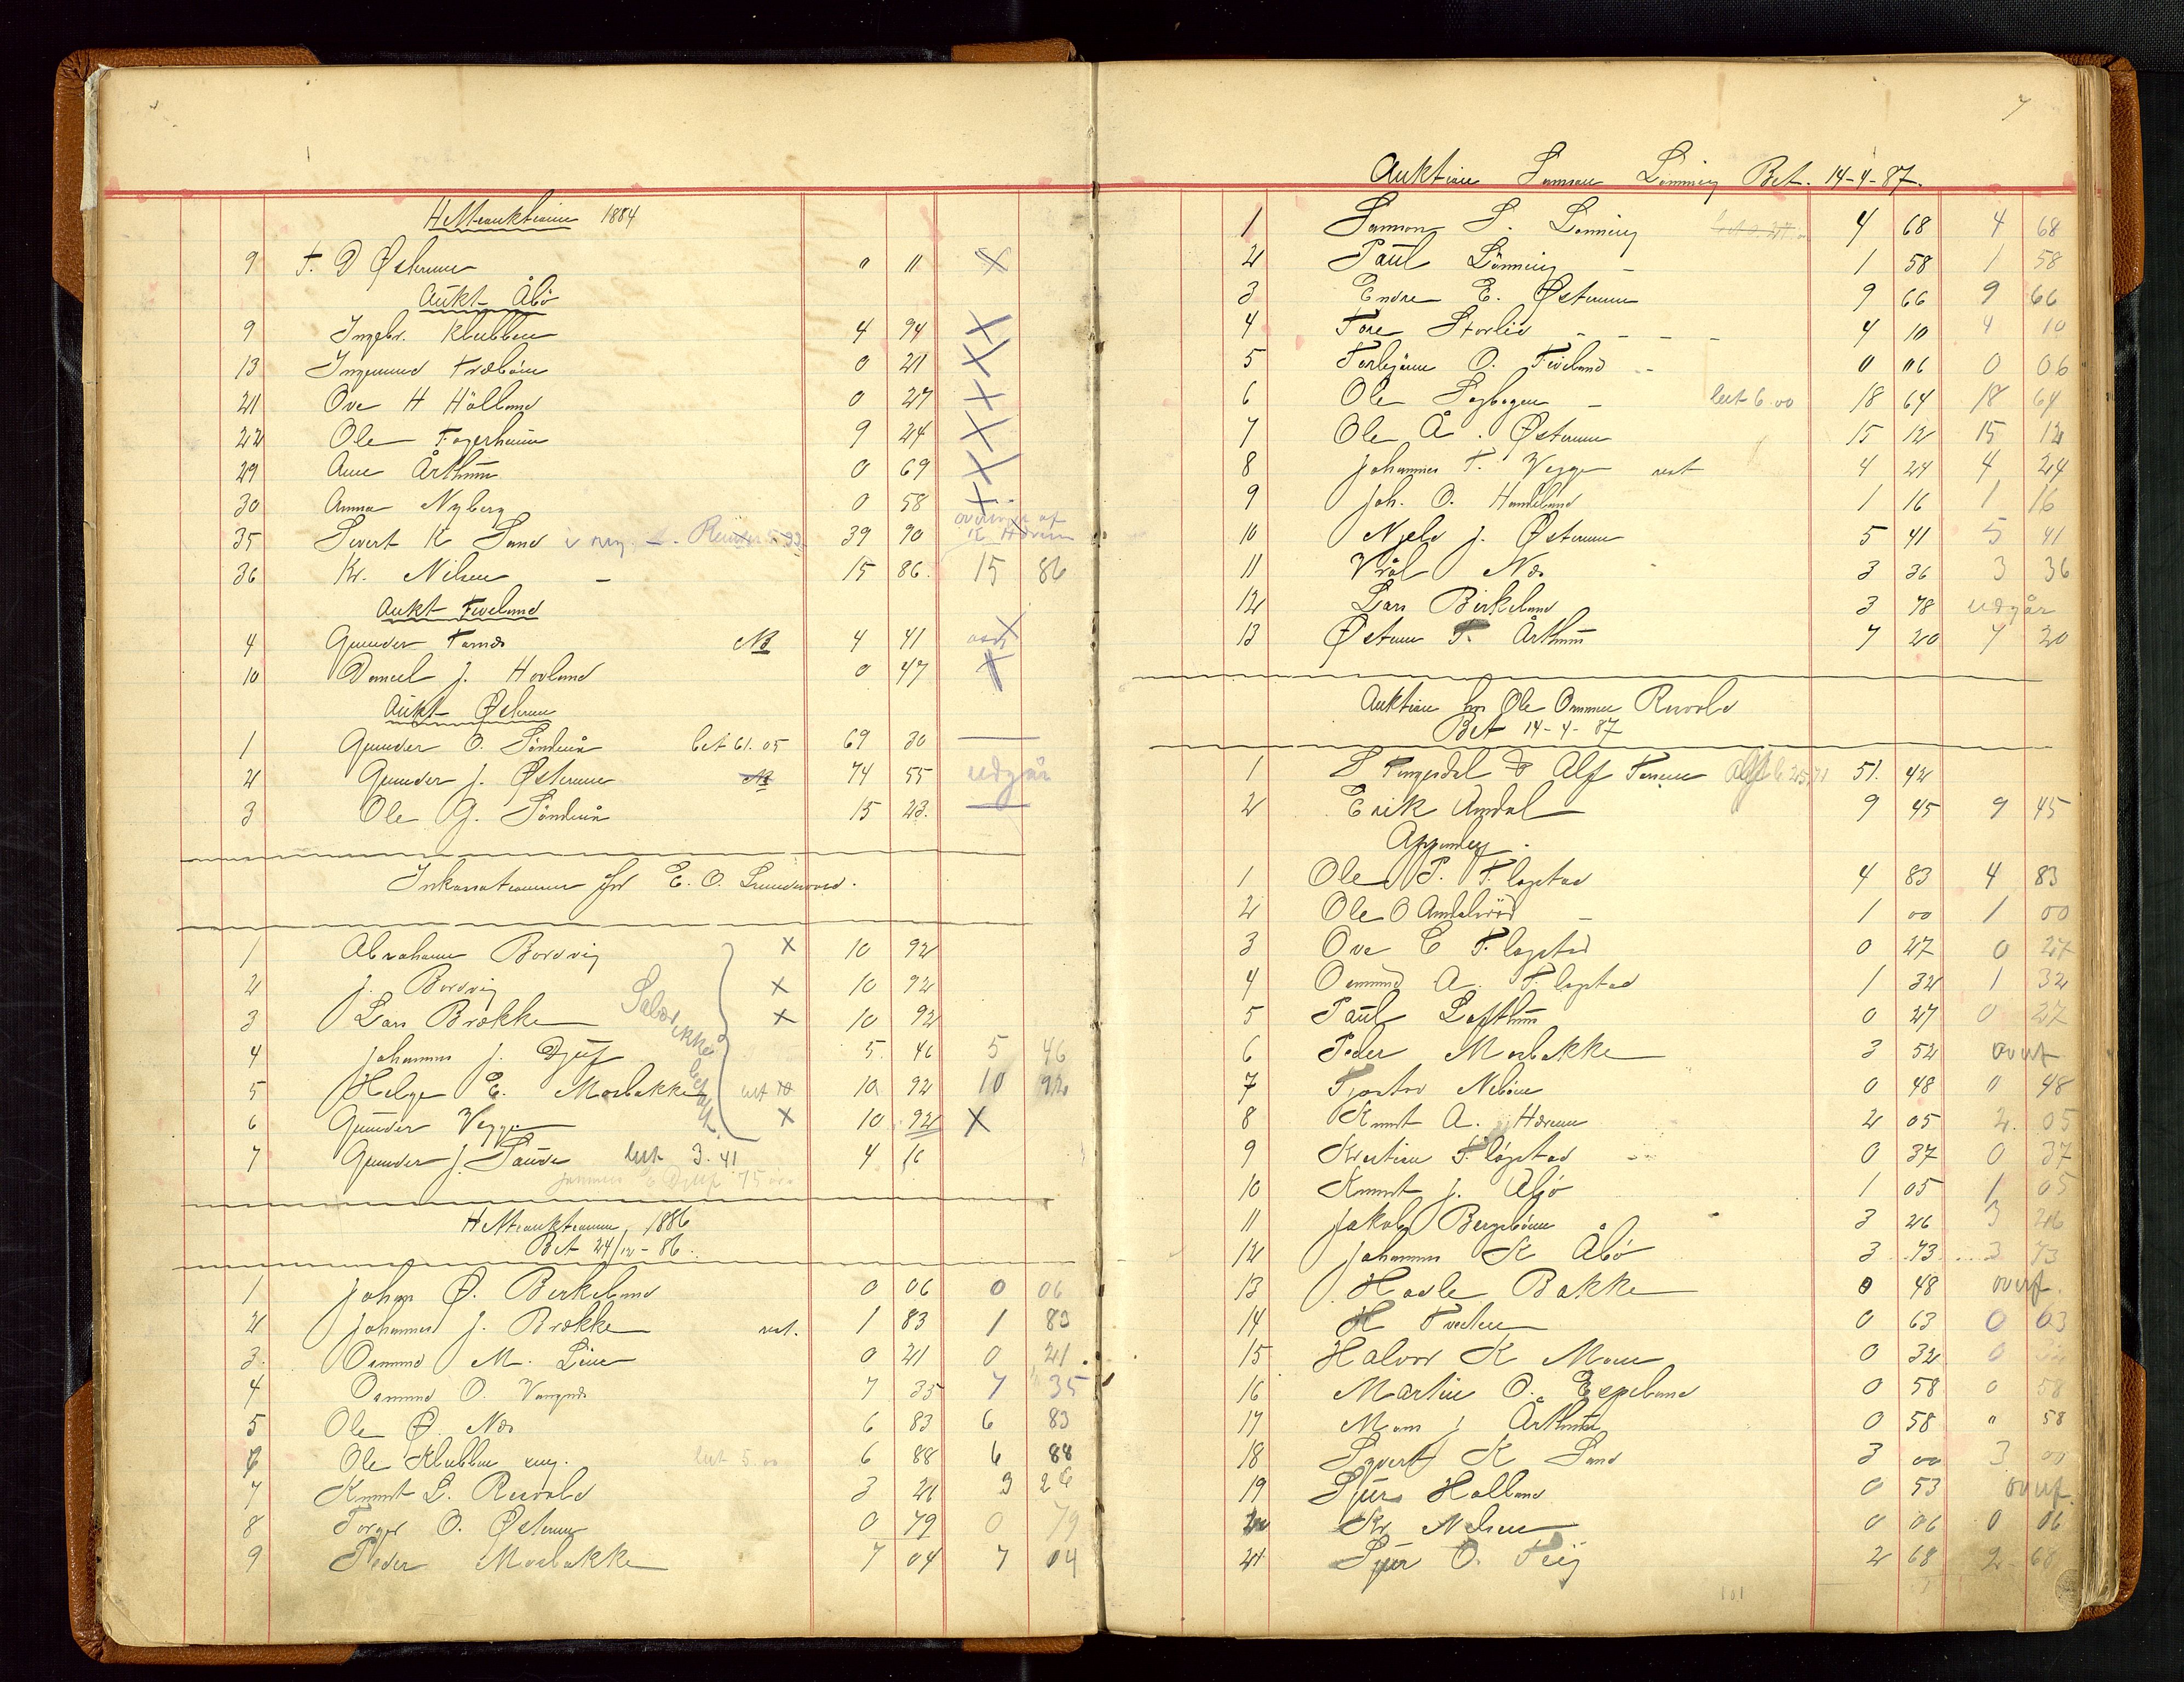 Høstauktionen 1884
9 T. D Østerhus " 11 X
Aukt Åbø
9 Ingebr. Klubben 4 94 X
13 Ingemund Træbøen 0 21 X
21 Ove H Hölland 0 27 X
22 Ole Fagerheim 9 24 X
29 Ane Århuus 0 69 X
30 Anna Nyberg 0 58 X
35 Sivert K Sand 39 90 overtages af K Hærum
36 Kr. Nilsen 15 86. 15 86
Aukt Tveland
4 Gunder NB 4 41
10 Daniel J. Hovland 0 47 X
Aukt Østerhus
1 Gunder O. Søndenå bet 61.05 69 30 —
2 Gunder J. Østerhus NB 74 55 udgår
3 Ole G. Søndenå 15 23. —
Inkassationer for E. O. Sundevold.
1 Abraham Bordvig X 10 92
2 J. Bordvig X 10 92
3 Lars Brække X 10 92
Salær ikke betalt.
4 Johannes J. Djuf 5. 46 5 46
5 Helge E. Mosbakke bet 10 10 92 10 92
6 Gunder Vegge X 10 92 X
7 Gunder J. Saude bet 3.41 4 16
75 øre
Høstauktionen 1886
Bet 24/12-86.
1 Johan Ø. Birkeland 0 06 0 06
2 Johannes J. Brække rest. 1 83 1 83
3. Osmund M. Lien 0 21 0 21
4 Osmund O. Vangsnes 7 35 7 35
5 Ole Ø. Næs 6 83 6 83
6 Ole Klubben eng. bet 5.00 6 88 6 88
7 Knut L. Risvold 3 26 3 26
8 Torger O. Østerhus 0 79 0 79
9 Peder Mosbakke 7 04 7 04
7
Auktion Samson Lönning Bet. 14-4-87.
1 Samson S. Lönning 4 68 4 68
2 Paul Lönning 1 58 1 58
3 Endre E. Østerhus 9 66 9 66
4 Tore Storlid 4 10 4 10
5 Torbjørn O. Tveland 0 06 0 06
6 Ole Sagbogen bet 6.00 18 64 18 64
7 Ole Å. Østerhus 15 12 15 12
8 Johannes T. Vegge rest 4 24 4 24
9 Joh. O. Handeland 1 16 1 16
10 Njeld J. Østerhus 5 41 5 41
11 Vrål Næs 3 36 3 36
12 Lars Birkeland 3 78 udgår
13 Østen T. Århuus 7 20 7 20
Auktion hos Ole Ommun Risvold
Bet 14-4-87
1 S Tengesdal & Alf 51. 42
2 Erik Amdal 9 45 9 45
Appendix.
1 Ole P. Fløgstad 4 83 4 83
2 Ole O Amdalsrød 1 00 1 00
3 Ove E Fløgstad 0 27 0 27
4 Osmund A. Fløgstad 1 32 1 32
5 Paul Lofthus 0 27 0 27
6 Peder Mosbakke 3 52 overf
7 Tjostov Nebøen 0 48 0 48
8 Knut A. Hærum 2 05 2. 05
9 Kristian Fløgstad 0 37 0 37
10 Knut J. Åbø 1 05 1 05
11 Jakob Bergsbøen 3 26 3 26
12 Johannes K Åbø 3. 73 3 73
13 Havle Bakke 0 48 overf.
14 H Tveiten 0 63 0 63
15 Halvor K Moen 0 32 0 32
16 Martin O. Espeland 0 58 0 58
17 Mons J Århuus 0 58 " 58
18 Sivert K Sand 3 00 3 00
19 Sjur Halland 0 53 overf.
20 Kr Nilsen 0 06 0 06
21 Sjur O. Teig 2 68 2 68
101